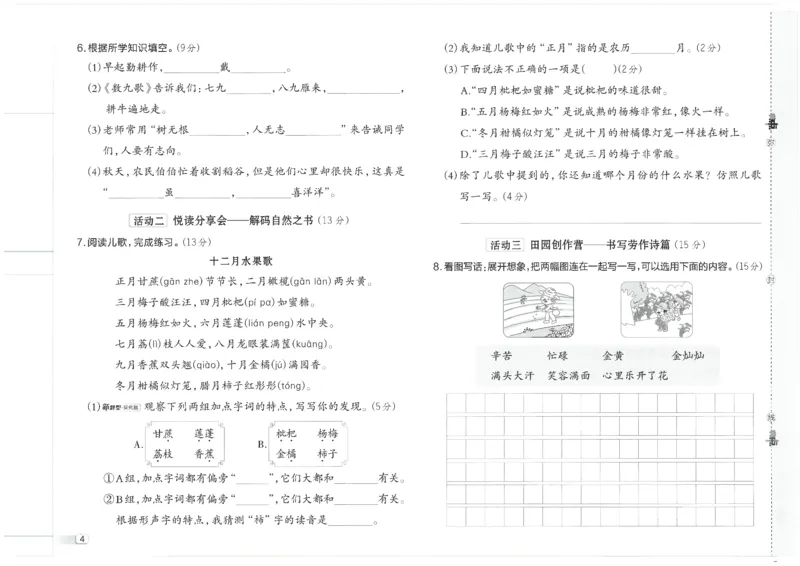 6.根据所学知识填空。(9分)
(1)早起勤耕作,________戴________。
(2)《数九歌》告诉我们:七九________,八九雁来,________,
耕牛遍地走。
(3)老师常用“树无根________,人无志________”来告诫同学
们,人要有志向。
(4)秋天,农民伯伯忙着收割稻谷,但是他们心里却很快乐,这真是
“________虽________,________喜洋洋”。
活动二 悦读分享会——解码自然之书(13分)
7.阅读儿歌,完成练习。(13分)
十二月水果歌
正月甘蔗(gān zhe)节节长,二月橄榄(gǎn lǎn)两头黄。
三月梅子酸汪汪,四月枇杷(pí pɑ)如蜜糖。
五月杨梅红如火,六月莲蓬(lián peng)水中央。
七月荔(lì)枝人人爱,八月龙眼装满筐(kuāng)。
九月香蕉双头翘(qiào),十月金橘(jú)满园香。
冬月柑橘似灯笼,腊月柿子红彤彤(tóng)。
(1) 观察下列两组加点字词的特点,写写你的发现。(5分)
A. 甘蔗 莲蓬 荔枝 香蕉 B. 枇杷 杨梅 金橘 柿子
①A组,加点字词都有偏旁“______”,它们大都和________有关。
②B组,加点字词都有偏旁“______”,它们大都和________有关。
根据形声字的特点,我猜测“柿”字的读音是________。
4
(2)我知道儿歌中的“正月”指的是农历________月。(2分)
(3)下面说法不正确的一项是( )(2分)
A.“四月枇杷如蜜糖”是说枇杷的味道很甜。
B.“五月杨梅红如火”是说成熟的杨梅非常红,像火一样。
C.“冬月柑橘似灯笼”是说十月的柑橘像灯笼一样挂在树上。
D.“三月梅子酸汪汪”是说三月的梅子非常酸。
(4)除了儿歌中提到的,你还知道哪个月份的什么水果?仿照儿歌
写一写。(4分)
活动三 田园创作营——书写劳作诗篇(15分)
8.看图写话:展开想象,把两幅图连在一起写一写,可以选用下面的内容。(15分)
辛苦 忙碌 金黄 金灿灿
满头大汗 笑容满面 心里乐开了花